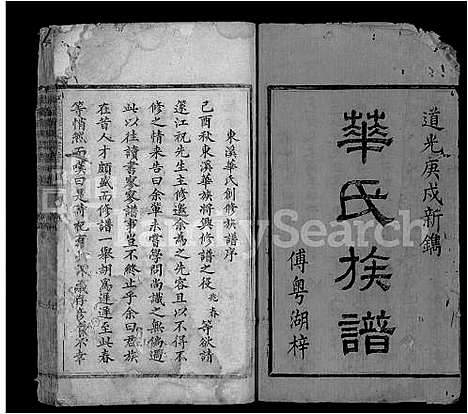 道光庚戌新鐫
華氏族譜
傅粵湖梓
東溪華氏創修族譜序
己酉秋東溪華族將興修譜之役兆春等欲請
還江祝先生主修邀余為之先容且以不辞
修之情來告曰余輩未嘗學問尚識之無偏遇
此以往讀書家家譜事豈不終止乎余曰君族
在昔人才頗盛而修譜一舉胡為遲遲至此春
等悄然而嘆曰是
FamilySearch